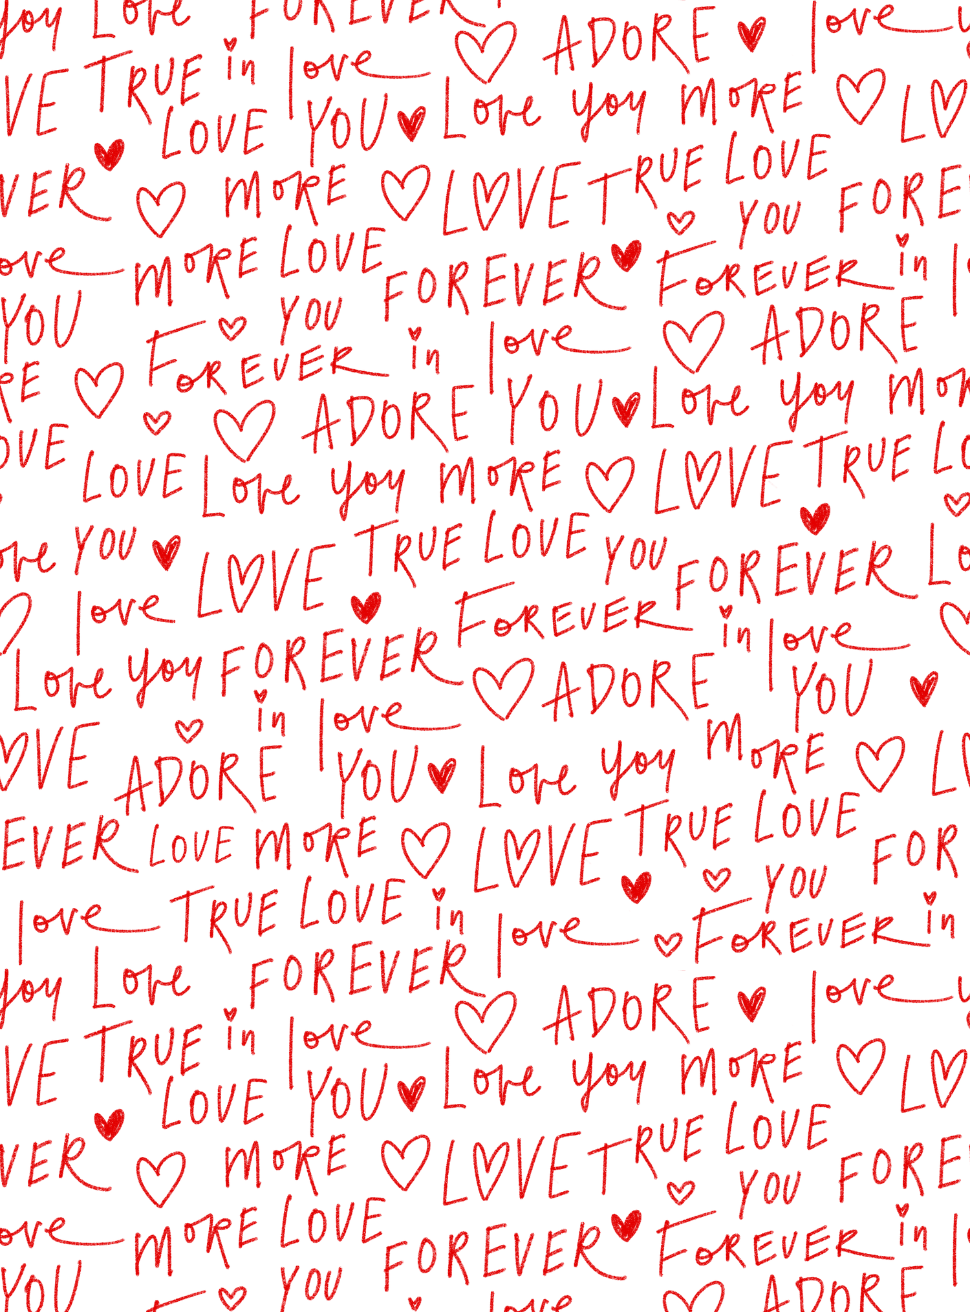 you Love FOREVER
ADORE love
VE TRUE in love
LOVE YOU Love you MORE LO
VER MORE LOVE TRUE LOVE
YOU FORE
ove MORE LOVE FOREVER FOREVER in
YOU FOREVER YOU in love ADORE
RE ADORE YOU Love you MOR
OVE LOVE Love you MORE LOVE TRUE LO
ove YOU LOVE TRUE LOVE YOU FOREVER Lo
love FOREVER in love
Love you FOREVER ADORE YOU
in love
OVE ADORE YOU Love you MORE L
EVER LOVE MORE LOVE TRUE LOVE
YOU FOR
love TRUE LOVE in love FOREVER in
you Love FOREVER
ADORE love
VE TRUE in love
LOVE YOU Love you MORE LO
VER MORE LOVE TRUE LOVE
YOU FORE
ove MORE LOVE FOREVER FOREVER in
YOU YOU love ADORE